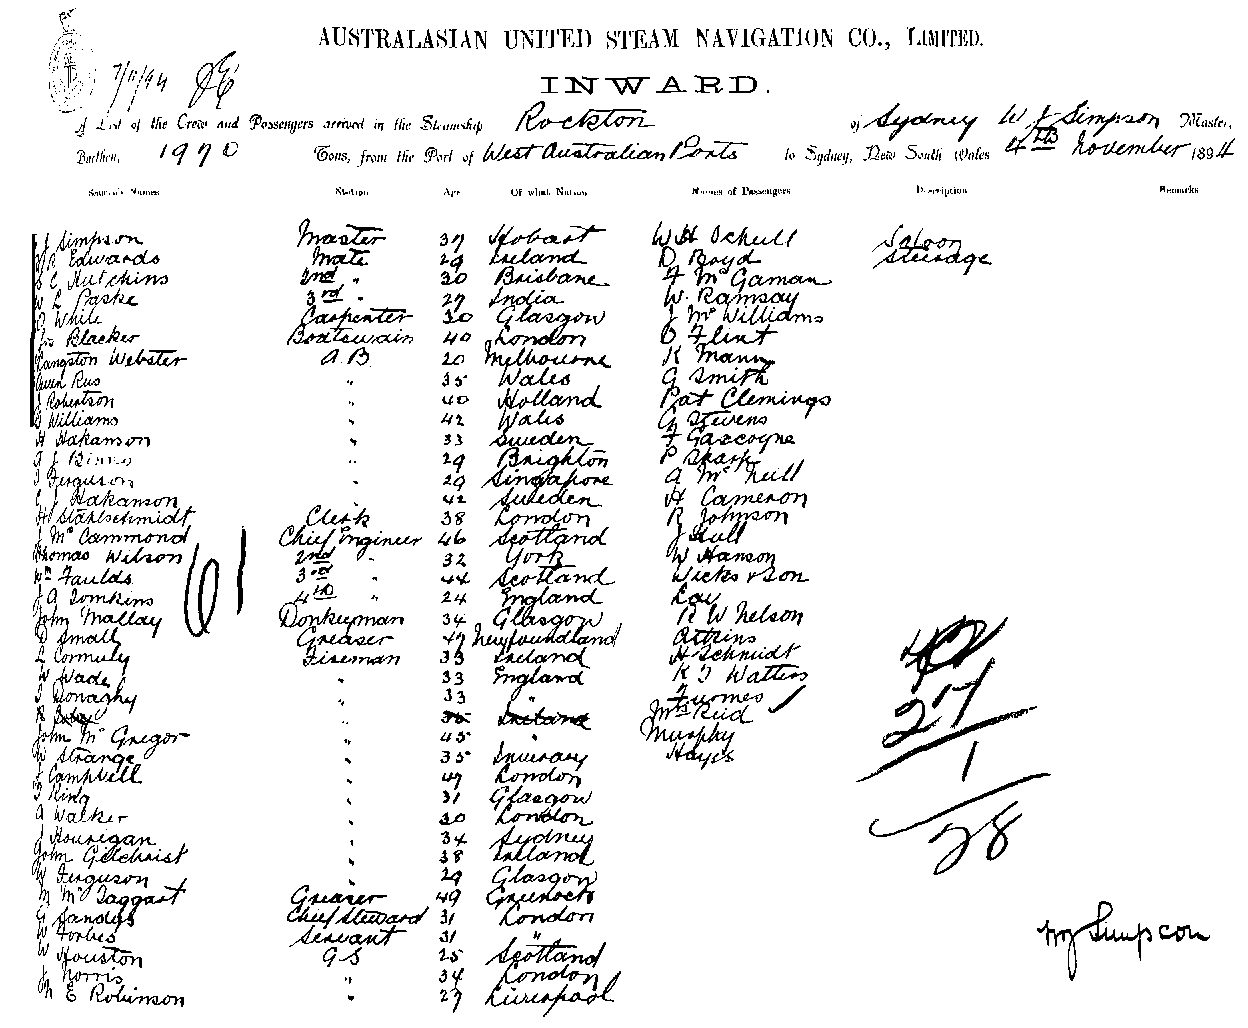 AUSTRALASIAN UNITED STEAM NAVIGATION CO., LIMITED.
7/11/94
INWARD.
A List of the Crew and Passengers arrived in the Steamship Rockton of Sydney W J Simpson Master,
Burthen, 1970 Tons, from the Port of West Australian Ports to Sydney, New South Wales 4th November 1894
Seamen's Names Station Age Of what Nation Names of Passengers Description Remarks
J Simpson Master 37 Hobart W H Schull Saloon
Edwards Mate 29 Ireland D Boyd Steerage
C Hutchins 2nd " 30 Brisbane F McGaman
W L Paske 3rd " 27 India W. Ramsay
White Carpenter 30 Glasgow J McWilliams
Jas Blacker Boatswain 40 London O Flint
Langston Webster A B 20 Melbourne K Mann
Owen Rus " 35 Wales G Smith
J Robertson " 40 Holland Pat Clemings
Williams " 42 Wales G Stevens
H Hakanson " 33 Sweden F Gascoyne
J Binns " 29 Brighton P Sharp
Ferguson " 29 Singapore A McNeill
Hakanson " 42 Sweden H Cameron
H Stahlschmidt Clerk 38 London R Johnson
J McCammond Chief Engineer 46 Scotland J Hull
Thomas Wilson 2nd " 32 York W Hanson
Wm Faulds 3rd " 44 Scotland Wicks & Son
J A Tomkins 4th " 24 England Lay
John Mallay Donkeyman 34 Glasgow R W Nelson
D Small Greaser 47 Newfoundland Atkins
L Cormuly Fireman 33 Ireland H Schmidt
W Wade " 33 England K T Watters
Donaghy " 33 " Furmes
R 35 Ireland Mrs Reid
John McGregor " 45 " Murphy
W Strange " 35 Inverary Hayes
J Campbell " 47 London
King " 31 Glasgow
A Walker " 30 London
J Hourigan " 34 Sydney
John Gilchrist " 38 Ireland
W Ferguson " 29 Glasgow
M McTaggart Greaser 49 Greenock
G Sandys Chief Steward 31 London
W Forbes Servant 31 "
W Houston G S 25 Scotland
J Norris " 34 London
E Robinson " 27 Liverpool
61
27
1
28
W J Simpson